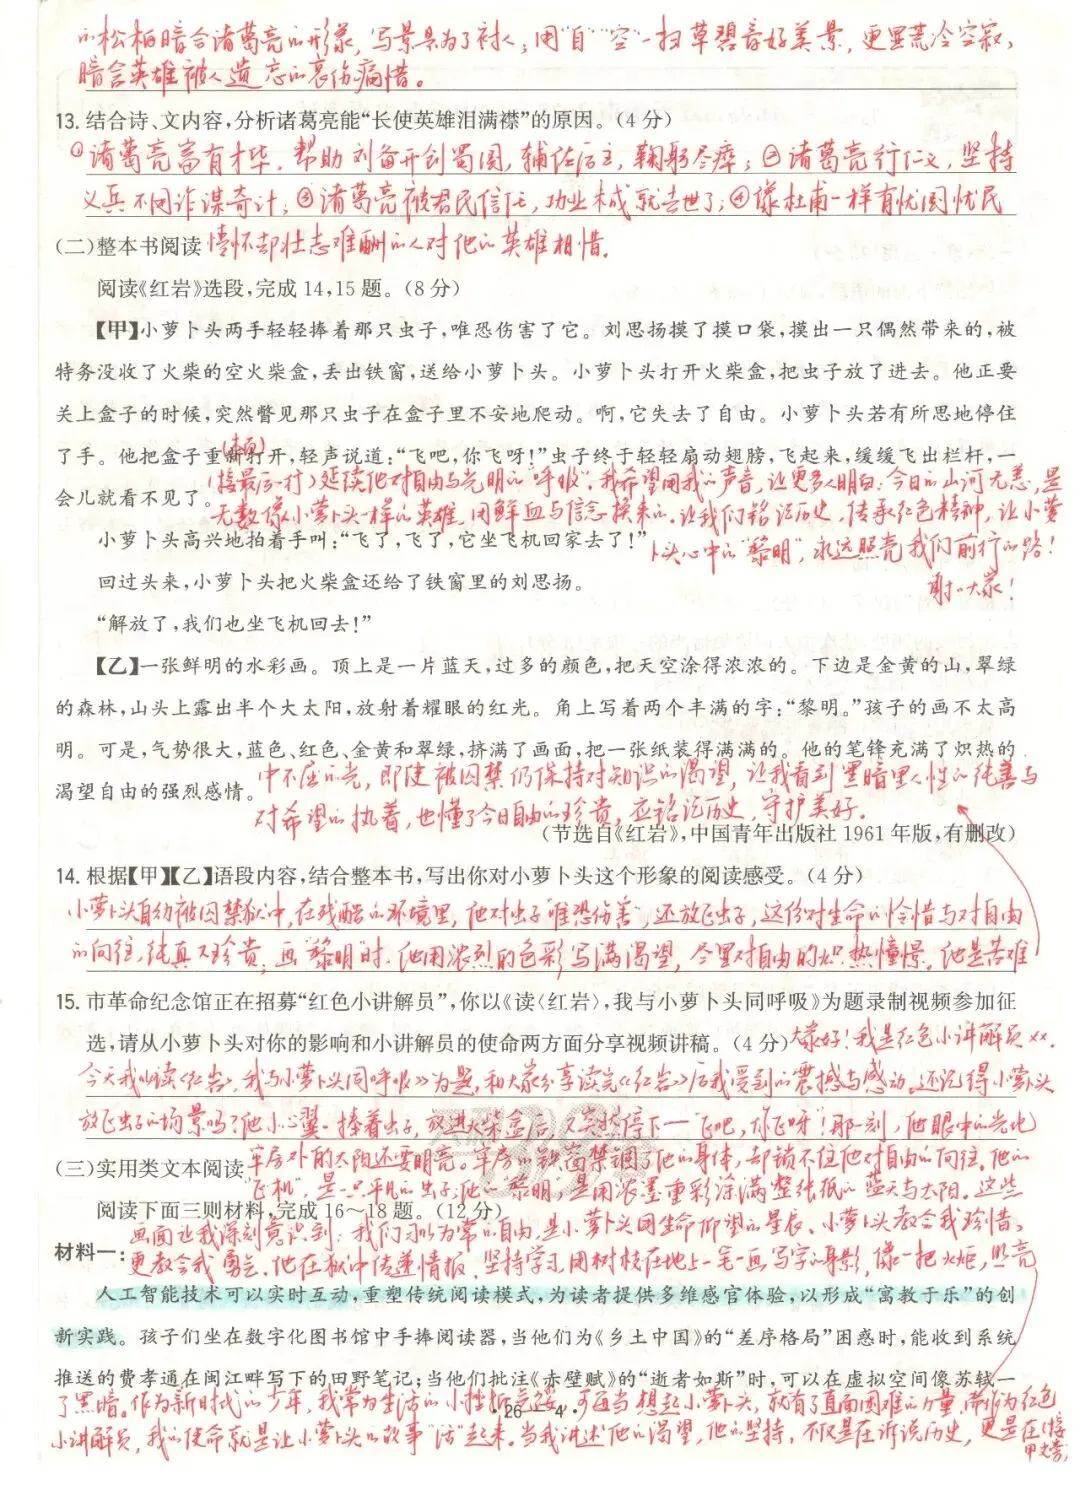 的松柏暗合诸葛亮的形象，写景是为了衬人；用“自”“空”一扫草碧音好美景，更显荒冷空寂，
暗含英雄被人遗忘的哀伤痛惜。
13. 结合诗、文内容，分析诸葛亮能“长使英雄泪满襟”的原因。(4 分)
①诸葛亮富有才华，帮助刘备开创蜀国，辅佐后主，鞠躬尽瘁；②诸葛亮行仁义，坚持
义兵不同诈谋奇计；③诸葛亮被君民信任，功业未成就去世了；④像杜甫一样有忧国忧民
(二)整本书阅读 情怀却壮志难酬的人对他的英雄相惜。
阅读《红岩》选段，完成 14，15 题。(8 分)
【甲】小萝卜头两手轻轻捧着那只虫子，唯恐伤害了它。刘思扬摸了摸口袋，摸出一只偶然带来的，被
特务没收了火柴的空火柴盒，丢出铁窗，送给小萝卜头。小萝卜头打开火柴盒，把虫子放了进去。他正要
关上盒子的时候，突然瞥见那只虫子在盒子里不安地爬动。啊，它失去了自由。小萝卜头若有所思地停住
了手。他把盒子重新打开，轻声说道：“飞吧，你飞呀！”虫子终于轻轻扇动翅膀，飞起来，缓缓飞出栏杆，一
会儿就看不见了。
(接最后一行)延续他对自由与光明的“呼吸”。我希望用我的声音，让更多人明白：今日的山河无恙，是
无数像小萝卜头一样的英雄，用鲜血与信念换来的。让我们铭记历史，传承红色精神，让小萝
小萝卜头高兴地拍着手叫：“飞了，飞了，它坐飞机回家去了！”
卜头心中的“黎明”，永远照亮我们前行的路！
回过头来，小萝卜头把火柴盒还给了铁窗里的刘思扬。
谢谢大家！
“解放了，我们也坐飞机回去！”
【乙】一张鲜明的水彩画。顶上是一片蓝天，过多的颜色，把天空涂得浓浓的。下边是金黄的山，翠绿
的森林，山头上露出半个大太阳，放射着耀眼的红光。角上写着两个丰满的字：“黎明。”孩子的画不太高
明。可是，气势很大，蓝色、红色、金黄和翠绿，挤满了画面，把一张纸装得满满的。他的笔锋充满了炽热的
渴望自由的强烈感情。
中不屈的光，即使被囚禁仍保持对知识的渴望，让我看到黑暗里人性的纯善与
对希望的执着，也懂了今日自由的珍贵，应铭记历史，守护美好。
(节选自《红岩》，中国青年出版社 1961 年版，有删改)
14. 根据【甲】【乙】语段内容，结合整本书，写出你对小萝卜头这个形象的阅读感受。(4 分)
小萝卜头自幼被囚禁狱中，在残酷的环境里，他对虫子“唯恐伤害”，还放飞虫子，这份对生命的怜惜与对自由
的向往，纯真又珍贵；画“黎明”时，他用浓烈的色彩写满渴望，尽显对自由的炽热憧憬。他是苦难
15. 市革命纪念馆正在招募“红色小讲解员”，你以《读〈红岩〉，我与小萝卜头同呼吸》为题录制视频参加征
选，请从小萝卜头对你的影响和小讲解员的使命两方面分享视频讲稿。(4 分) 大家好！我是红色小讲解员××。
今天我以《读〈红岩〉，我与小萝卜头同呼吸》为题，和大家分享读完《红岩》后我受到的震撼与感动。还记得小萝卜头
放飞虫子的场景吗？他小心翼翼捧着虫子，放进火柴盒后，又突然停下——“飞吧，你飞呀！”那一刻，他眼中的光比
(三)实用类文本阅读 牢房外的太阳还要明亮。牢房的铁窗禁锢了他的身体，却锁不住他对自由的向往。他的
“飞机”，是一只平凡的虫子；他的“黎明”，是用浓墨重彩涂满整张纸的蓝天与太阳。这些
阅读下面三则材料，完成 16～18 题。(12 分)
画面让我深刻意识到：我们习以为常的自由，是小萝卜头用生命仰望的星辰。小萝卜头教会我珍惜，
材料一：更教会我勇敢。他在狱中传递情报，坚持学习，用树枝在地上一笔一画写字的身影，像一把火炬，照亮
人工智能技术可以实时互动，重塑传统阅读模式，为读者提供多维感官体验，以形成“寓教于乐”的创
新实践。孩子们坐在数字化图书馆中手捧阅读器，当他们为《乡土中国》的“差序格局”困惑时，能收到系统
推送的费孝通在闽江畔写下的田野笔记；当他们批注《赤壁赋》的“逝者如斯”时，可以在虚拟空间像苏轼一
了黑暗。作为新时代的少年，我常为生活的小挫折气馁，可每当想起小萝卜头，就有了直面困难的力量。而作为红色
· 26—4 ·
小讲解员，我的使命就是让小萝卜头的故事“活”起来。当我讲述他的渴望，他的坚持，不仅是在诉说历史，更是在(接